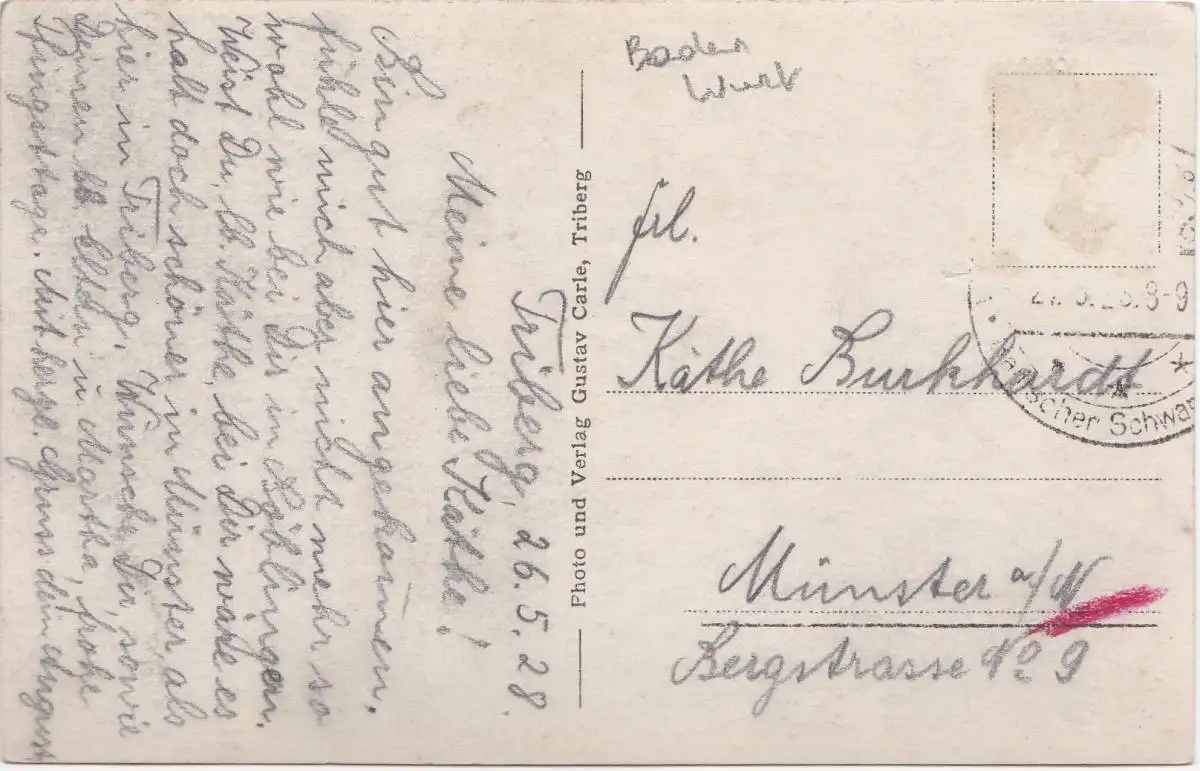 Triberg, 26.5.28.
Meine liebe Käthe!
Bin gut hier angekommen,
fühle mich aber nicht mehr so
wohl wie bei Dir im
Weist Du, lb. Käthe, bei Dir wäre es
halt doch schöner in Münster als
hier in Triberg. Wünsche Dir, sowie
Deinen lb. Eltern u. Martha, frohe
Pfingsttage. Mit herzl. Gruss dein August
Photo und Verlag Gustav Carle, Triberg
Baden
Wurt
Frl.
Käthe Burkhardt
Münster a/N
Bergstrasse No 9
8-9
scher Schwar